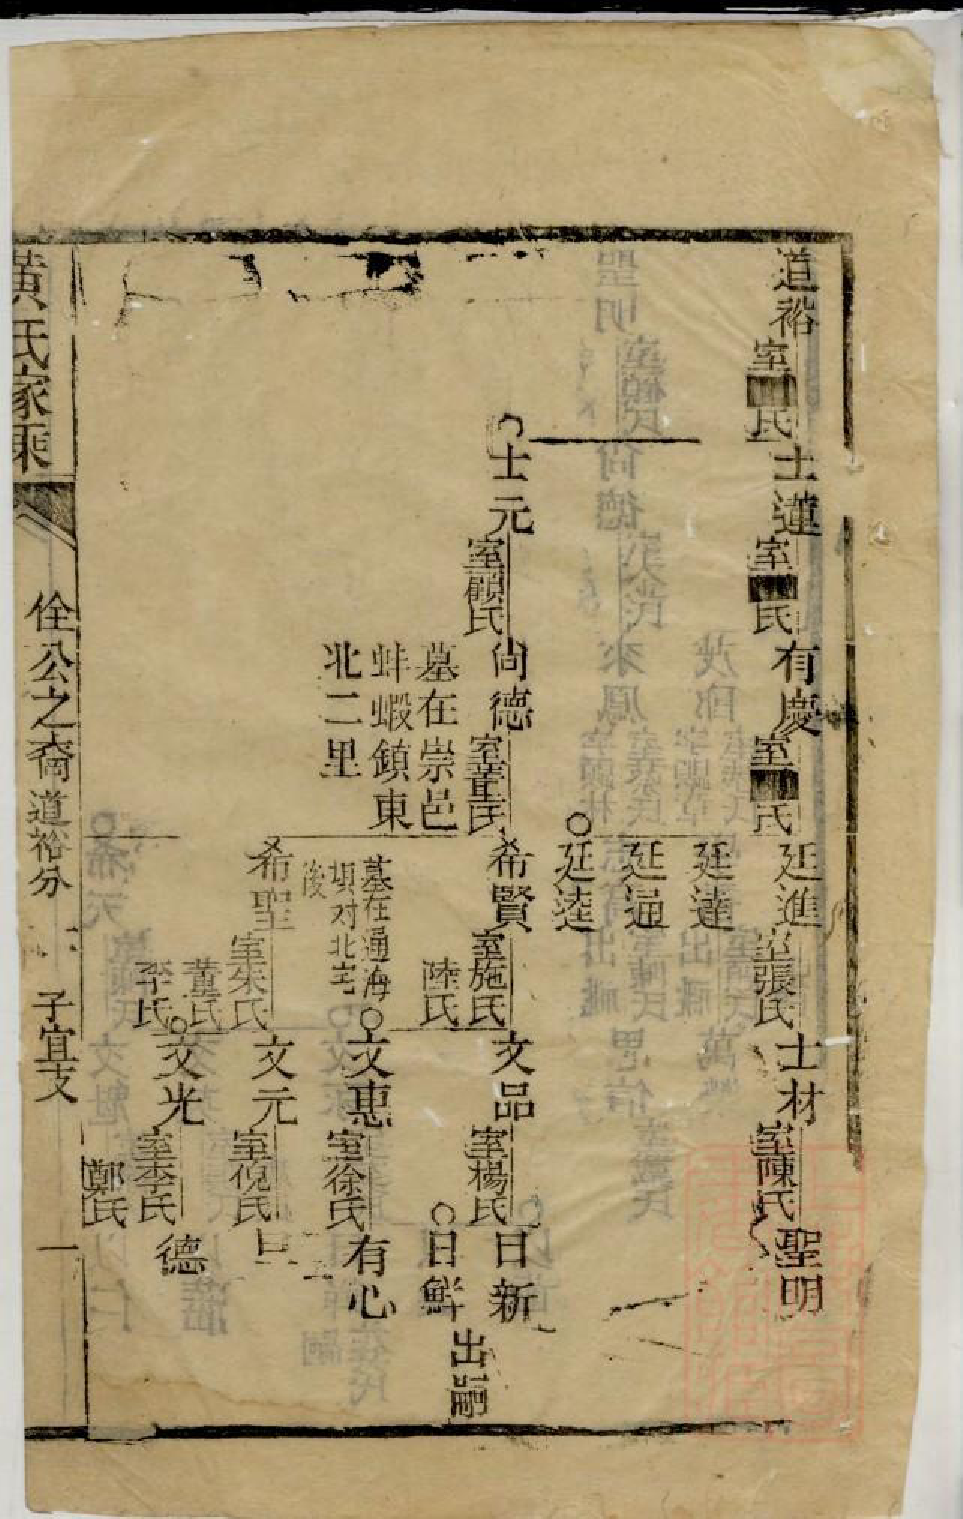 道裕
室氏
士蓮
室氏
有慶
室氏
廷進
室張氏
士材
室陳氏
聖明
廷達
廷通
廷逵
士元
室顧氏
尙德
室董氏
墓在崇邑
蚌蝦鎮東
北二里
希賢
室施氏
陸氏
墓在通海
垻對北宅
後
文品
室楊氏
日新
日鮮
出嗣
文惠
室徐氏
有心
希聖
室朱氏
董氏
李氏
文元
室倪氏
文光
室李氏
鄭氏
德
黃氏家乘
佺公之裔道裕分
子宜支
一